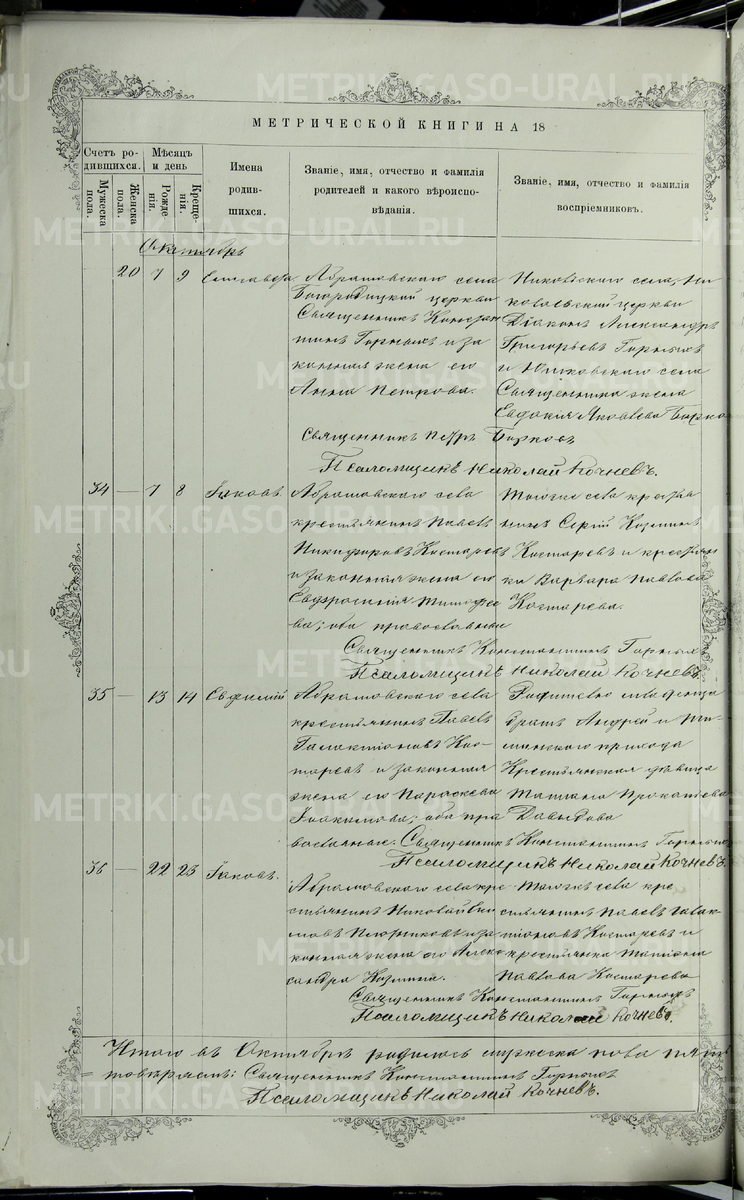 МЕТРИЧЕСКОЙ КНИГИ НА 18
Счетъ ро-
дившихся.
Мужеска
пола.
Женска
пола.
Мѣсяцъ
и день
Рожде
нія.
Креще-
нія.
Имена
родив-
шихся.
Званіе, имя, отчество и фамилія
родителей и какого вѣроиспо-
вѣданія.
Званіе, имя, отчество и фамилія
воспріемниковъ.
Октябрь
20 7 9 Елисавета
Абрамовскаго села
Богородицкой церкви
Священникъ Констан
тинъ Горныхъ и за
конная жена его
Анна Петрова.
села, Ни
колаевской церкви
Діаконъ Александръ
Григорьевъ Горныхъ
и села
Священника жена
Евдокія Яковлева
Священникъ Петръ
Псаломщикъ Николай Кочневъ.
34 — 7 8 Іаковъ.
Абрамовскаго села
крестьянинъ Павелъ
Никифоровъ Костаревъ
и законная жена его
Евфросинія Тимофее
ва; оба православные
Тогоже села крестья
нинъ Сергій Козминъ
Костаревъ и крестьян
ка Варвара Павлова
Костарева.
Священникъ Константинъ Горныхъ
Псаломщикъ Николай Кочневъ.
35 — 13 14 Евфимій
Абрамовскаго села
крестьянинъ Павелъ
Галактіоновъ Кос-
таревъ и законная
жена его Параскева
Іоакимова; оба пра
вославные.
младенца
братъ Андрей и
прихода
Крестьянская дѣвица
Татіана Прокопьева
Давыдова
Священникъ Константинъ Горныхъ
Псаломщикъ Николай Кочневъ.
36 — 22 23 Іаковъ.
Абрамовскаго села кре-
стьянинъ Николай
и за
конная жена его Алек
сандра Козмина.
Тогоже села кре
стьянинъ Павелъ Галак
тіоновъ Костаревъ и
крестьянка Татіана
Павлова Костарева
Священникъ Константинъ Горныхъ
Псаломщикъ Николай Кочневъ.
Итого въ Октябрѣ родилось мужеска пола пять
Священникъ Константинъ Горныхъ
Псаломщикъ Николай Кочневъ.
METRIKI.GASO-URAL.RU